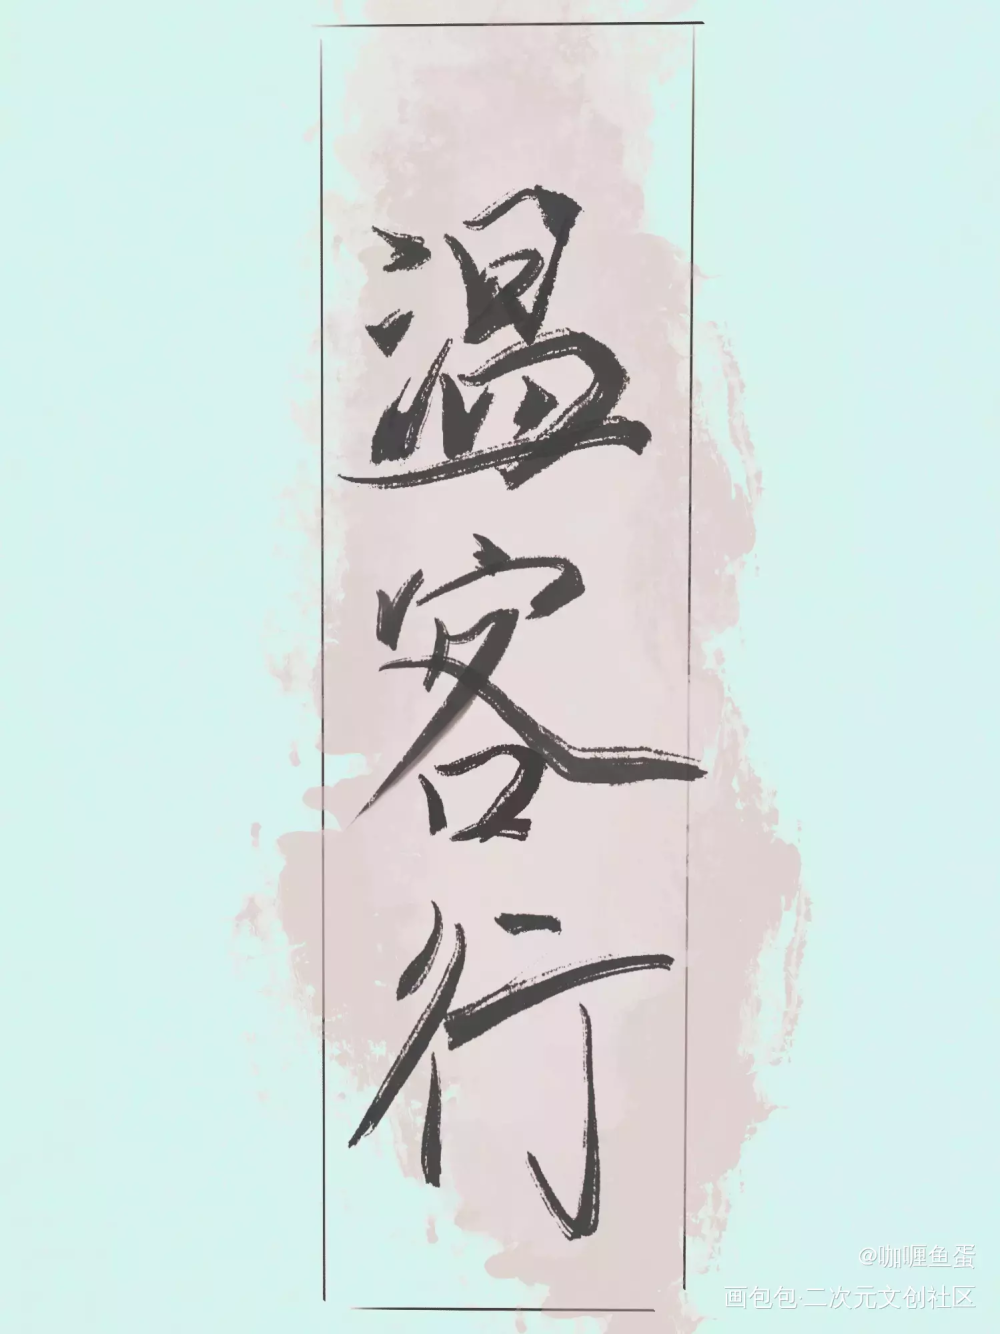 温客行
@咖喱鱼蛋
画包包·二次元文创社区